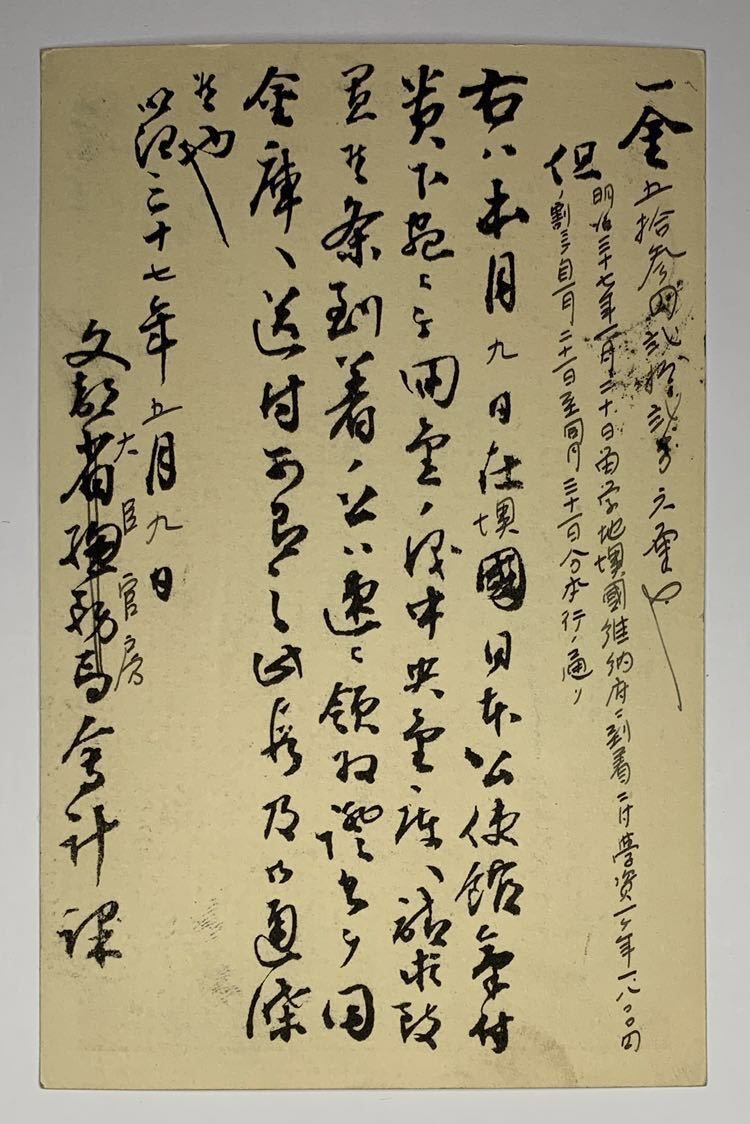 一金五拾參円弐拾弐銭六厘也
但明治三十七年一月二十日留学地墺國維納府ニ到着ニ付學資一ヶ年一、八〇〇円
ノ割ヲ自一月二十一日至同月三十一日分本行ノ通リ
右ハ本月九日在墺國日本公使館氣付
貴下宛ニテ同金ノ儀中央金庫ヘ請求致
置候条到着ノ上ハ速ニ領収證書ヲ同
金庫ヘ送付可有之此段及御通牒
候也
明治三十七年五月九日
大臣官房
文部省總務局會計課